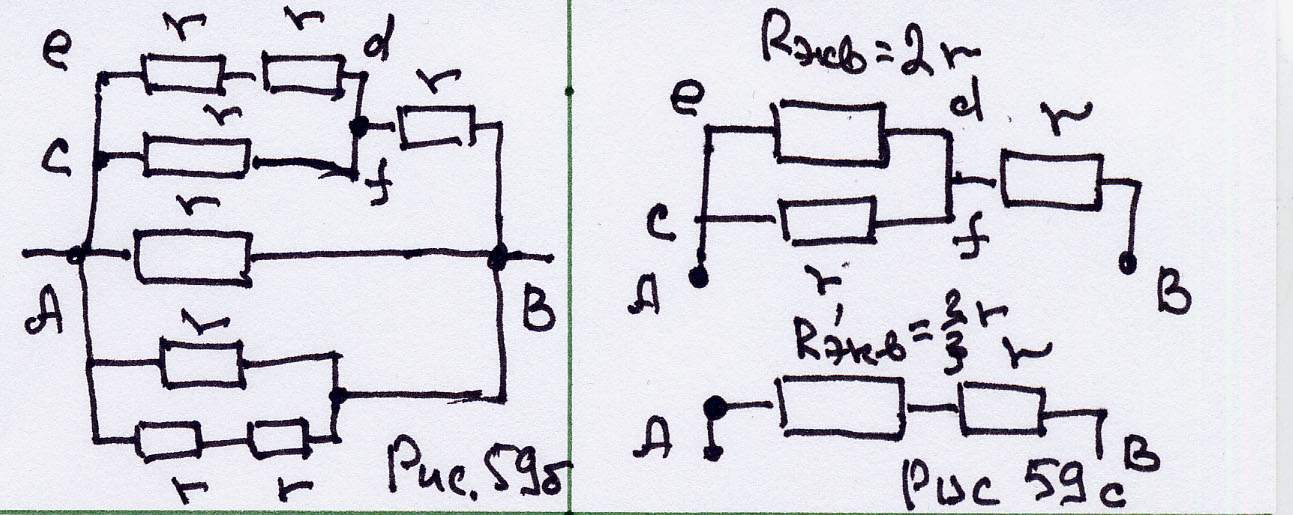 r r
e d
r r
c f
r
A B
r
r r
Рис. 59б
Rэкв=2r
e d
r
c f
r
A B
R'экв=2/3 r
r
A B
Рис 59с